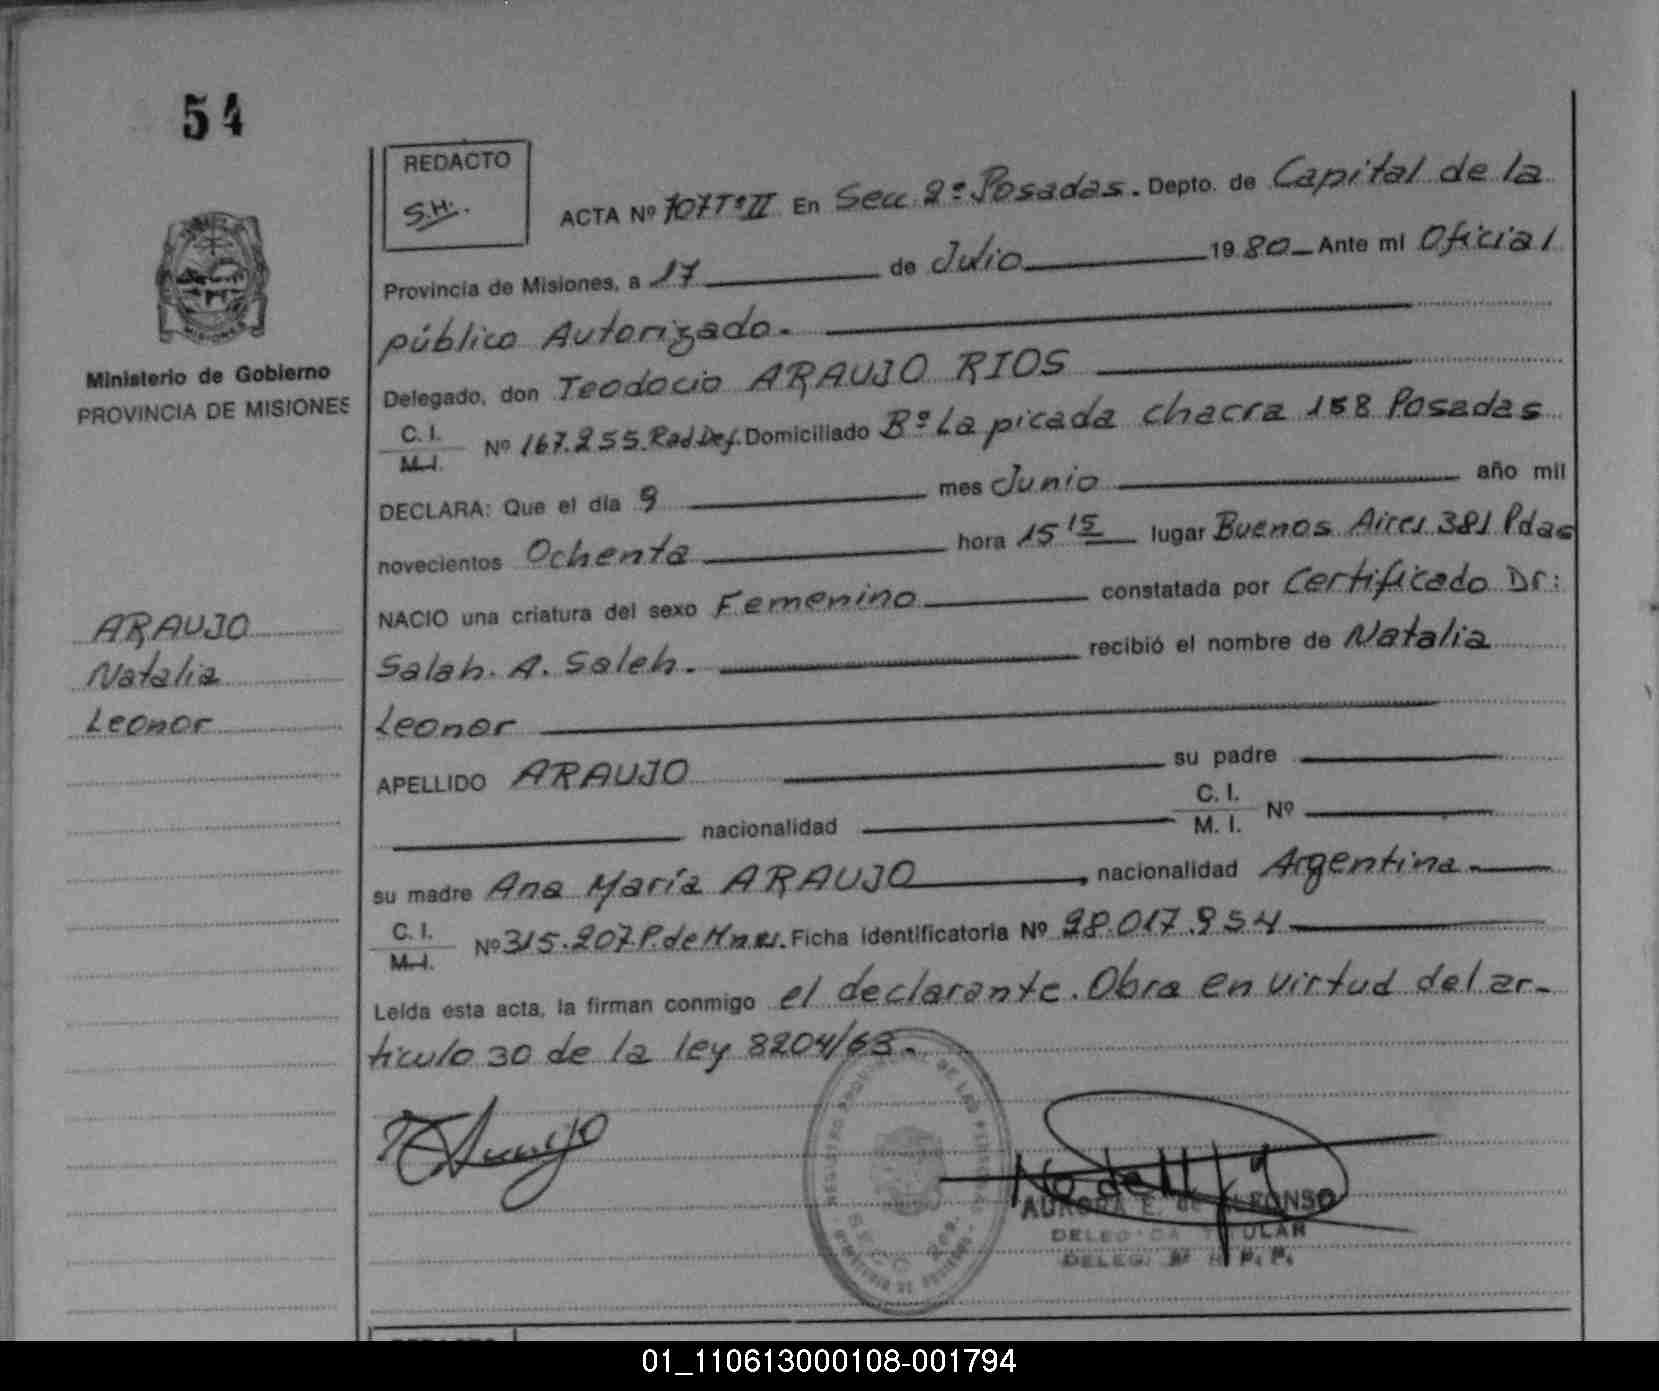 54
REDACTO
S.H.
ACTA Nº 707 Tº II En Secc 2ª Posadas. Depto. de Capital de la
Provincia de Misiones, a 17 de Julio 1980 Ante mí Oficial
público Autorizado.
Ministerio de Gobierno
PROVINCIA DE MISIONES
Delegado, don Teodocio ARAUJO RIOS
C. I.
M. I.
Nº 167.255 Rad Def. Domiciliado Bº La picada chacra 158 Posadas
DECLARA: Que el día 9 mes Junio año mil
novecientos Ochenta hora 15 15 lugar Buenos Aires 381 Pdas
NACIO una criatura del sexo Femenino constatada por Certificado Dr:
Salah. A. Saleh. recibió el nombre de Natalia
Leonor
ARAUJO
Natalia
Leonor
APELLIDO ARAUJO su padre
nacionalidad C. I.
M. I. Nº
su madre Ana María ARAUJO, nacionalidad Argentina
C. I.
M. I.
Nº 315.207 P. de Mnes. Ficha identificatoria Nº 28.017.954
Leída esta acta, la firman conmigo el declarante. Obra en virtud del ar-
ticulo 30 de la ley 8204/63.
AURORA E. de ALFONSO
DELEGADA TITULAR
01_110613000108-001794